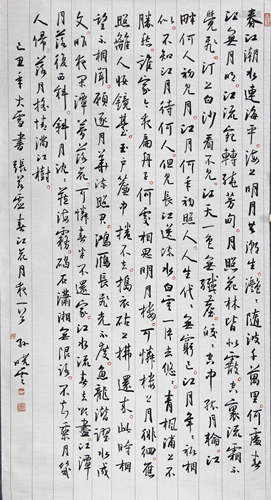 春江潮水連海平海上明月共潮生灩灩隨波千萬里何處春
江無月明江流宛轉繞芳甸月照花林皆似霰空裏流霜不
覺飛汀上白沙看不見江天一色無纖塵皎皎空中孤月輪江
畔何人初見月江月何年初照人人生代代無窮已江月年年祗相
似不知江月待何人但見長江送流水白雲一片去悠悠青楓浦上不
勝愁誰家今夜扁舟子何處相思明月樓可憐樓上月徘徊應
照離人妝鏡臺玉戶簾中捲不去搗衣砧上拂還來此時相
望不相聞願逐月華流照君鴻雁長飛光不度魚龍潛躍水成
文昨夜閑潭夢落花可憐春半不還家江水流春去欲盡江潭
月落復西斜斜月沉沉藏海霧碣石瀟湘無限路不知乘月幾
人歸落月搖情滿江樹
己丑年大雪書張若虛春江花月夜一首 孫曉雲